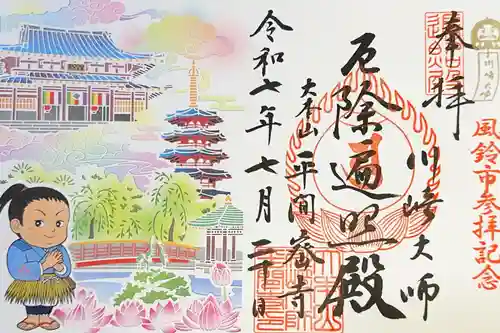 奉拝
川崎大師
厄除遍照殿
大本山
平間寺
令和七年七月二十日
風鈴市参拝記念